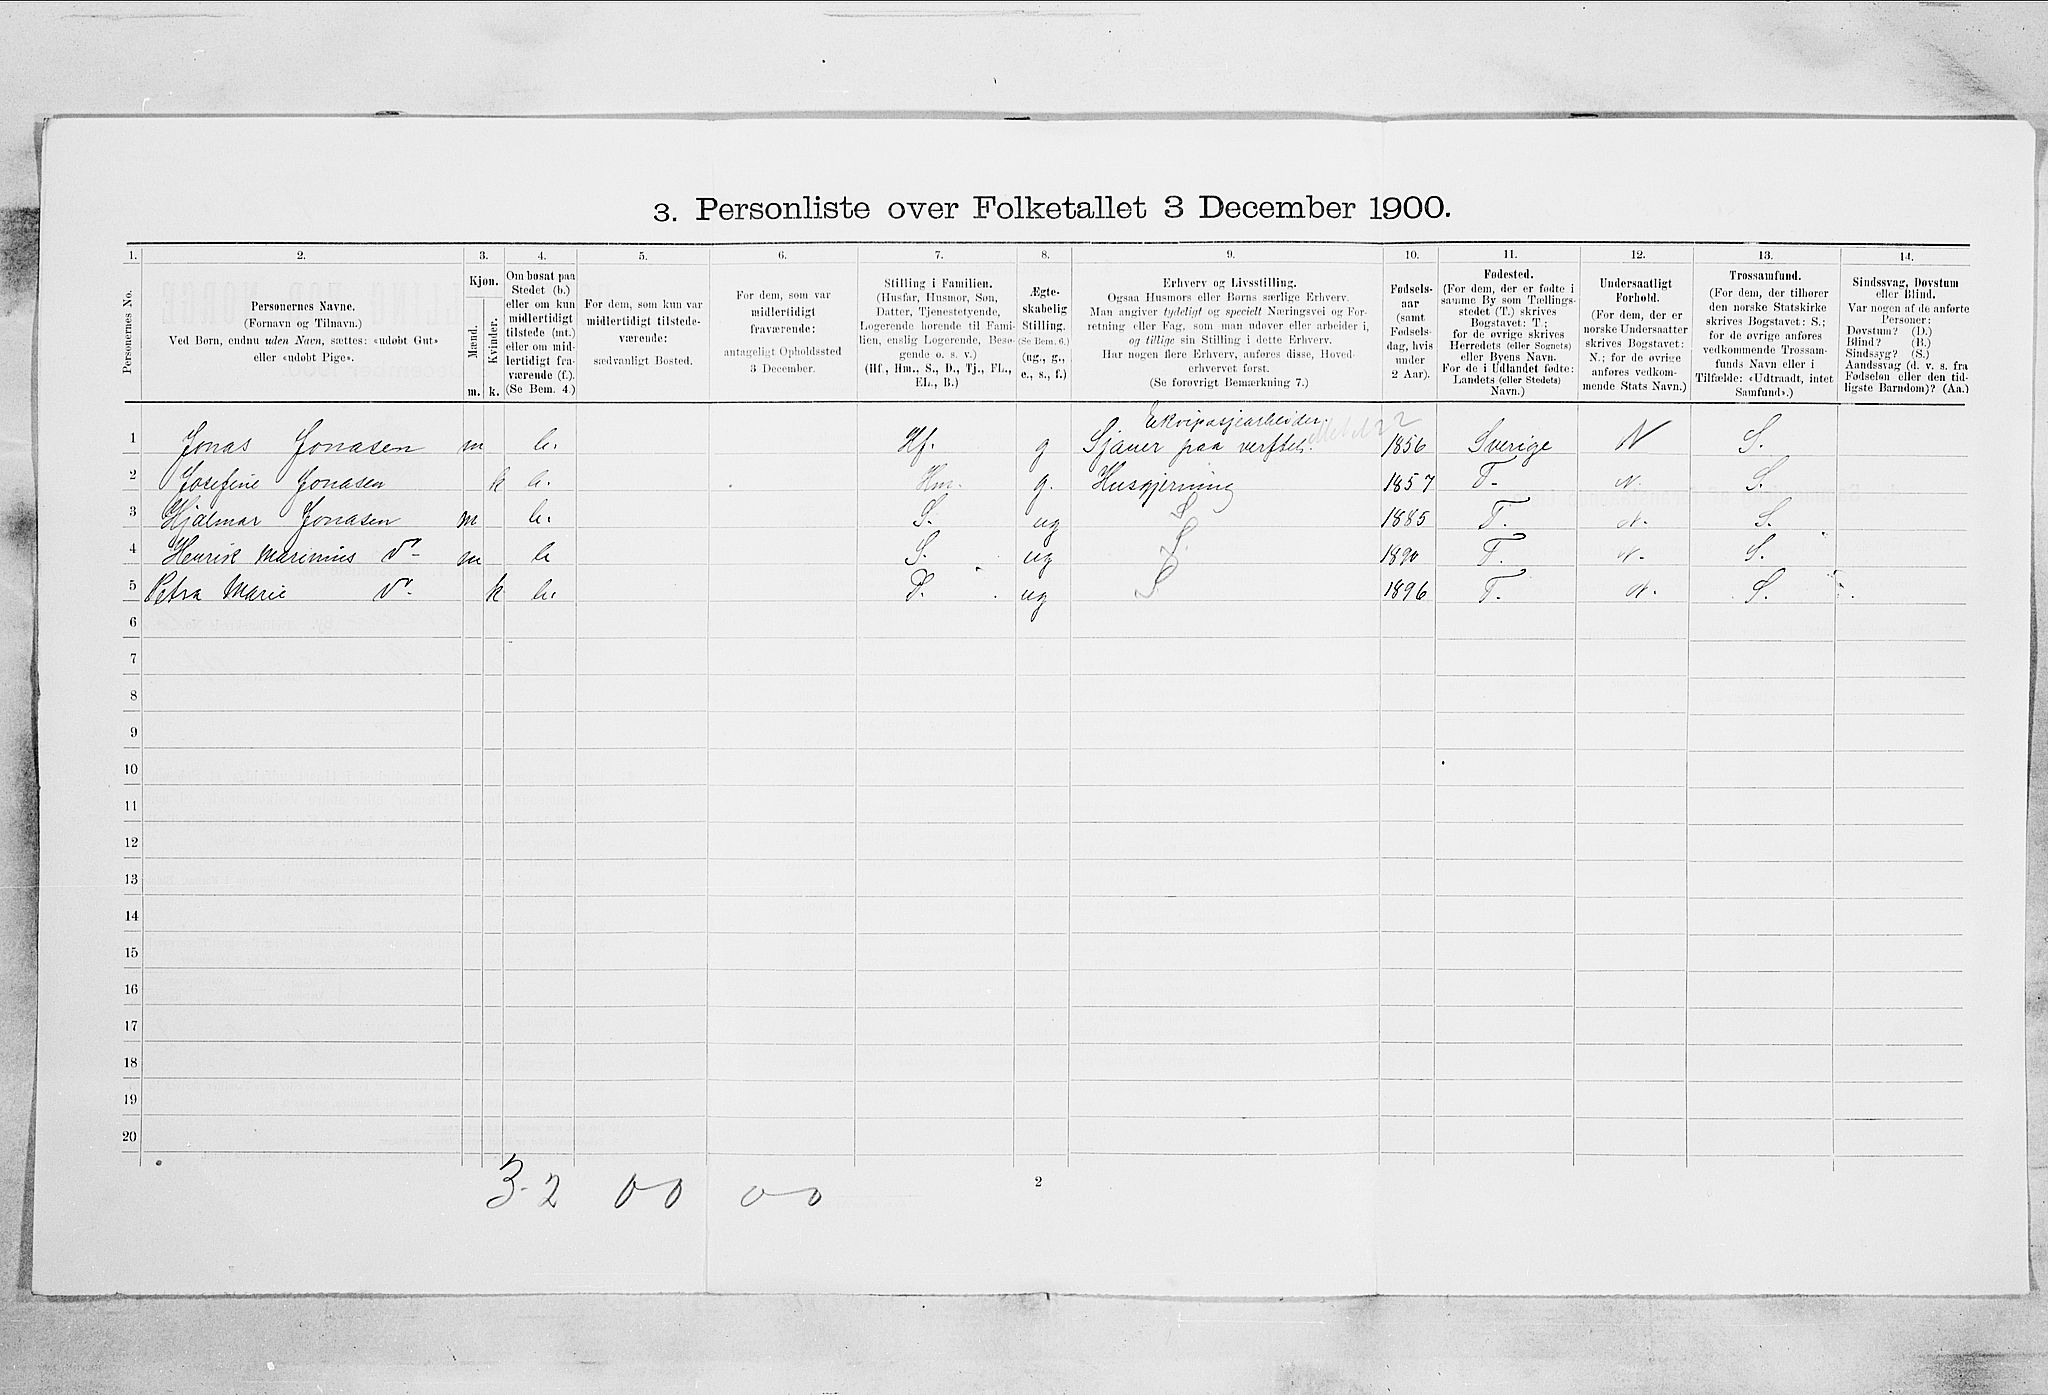 3. Personliste over Folketallet 3 December 1900.
1. 2. 3. 4. 5. 6. 7. 8. 9. 10. 11. 12. 13. 14.
Personernes No.
Personernes Navne.
(Fornavn og Tilnavn.)
Ved Børn, endnu uden Navn, sættes: «udøbt Gut»
eller «udøbt Pige».
Kjøn.
Mænd.
Kvinder.
m. k.
Om bosat paa
Stedet (b.)
eller om kun
midlertidigt
tilstede (mt.)
eller om mid-
lertidigt fra-
værende (f.).
(Se Bem. 4.)
For dem, som kun var
midlertidigt tilstede-
værende:
sædvanligt Bosted.
For dem, som var
midlertidigt
fraværende:
antageligt Opholdssted
3 December.
Stilling i Familien.
(Husfar, Husmor, Søn,
Datter, Tjenestetyende,
Logerende hørende til Fami-
lien, enslig Logerende, Besø-
gende o. s. v.)
(Hf., Hm., S., D., Tj., FL.,
EL., B.)
Ægte-
skabelig
Stilling.
(Se Bem. 6.)
(ug., g.,
e., s., f.)
Erhverv og Livsstilling.
Ogsaa Husmors eller Børns særlige Erhverv.
Man angiver tydeligt og specielt Næringsvei og For-
retning eller Fag, som man udøver eller arbeider i,
og tillige sin Stilling i dette Erhverv.
Har nogen flere Erhverv, anføres disse, Hoved-
erhvervet først.
(Se forøvrigt Bemærkning 7.)
Fødsels-
aar
(samt
Fødsels-
dag, hvis
under
2 Aar).
Fødested.
(For dem, der er fødte i
samme By som Tællings-
stedet (T.) skrives
Bogstavet: T;
for de øvrige skrives
Herredets (eller Sognets)
eller Byens Navn.
For de i Udlandet fødte:
Landets (eller Stedets)
Navn.)
Undersaatligt
Forhold.
(For dem, der er
norske Undersaatter
skrives Bogstavet:
N.; for de øvrige
anføres vedkom-
mende Stats Navn.)
Trossamfund.
(For dem, der tilhører
den norske Statskirke
skrives Bogstavet: S.;
for de øvrige anføres
vedkommende Trossam-
funds Navn eller i
Tilfælde: «Udtraadt, intet
Samfund».)
Sindssvag, Døvstum
eller Blind.
Var nogen af de anførte
Personer:
Døvstum? (D.)
Blind? (B.)
Sindssyg? (S.)
Aandssvag (d. v. s. fra
Fødselen eller den tid-
ligste Barndom)? (Aa.)
Ekvipasjearbeider
1 Jonas Jonasen m b. Hf. g Sjauer paa verftet. 1856 Sverige N S.
2 Josefine Jonasen k b. Hm. g. Husgjerning 1857 T. N. S.
3 Hjalmar Jonasen m b. S. ug S 1885 T. N. S.
4 Henrik Marinius Do m b S. ug S. 1890 T. N. S.
5 Petra Marie Do k b. D. ug S. 1896 T. N. S.
6
7
8
9
10
11
12
13
14
15
16
17
18
19
20
3-2 00 00
2